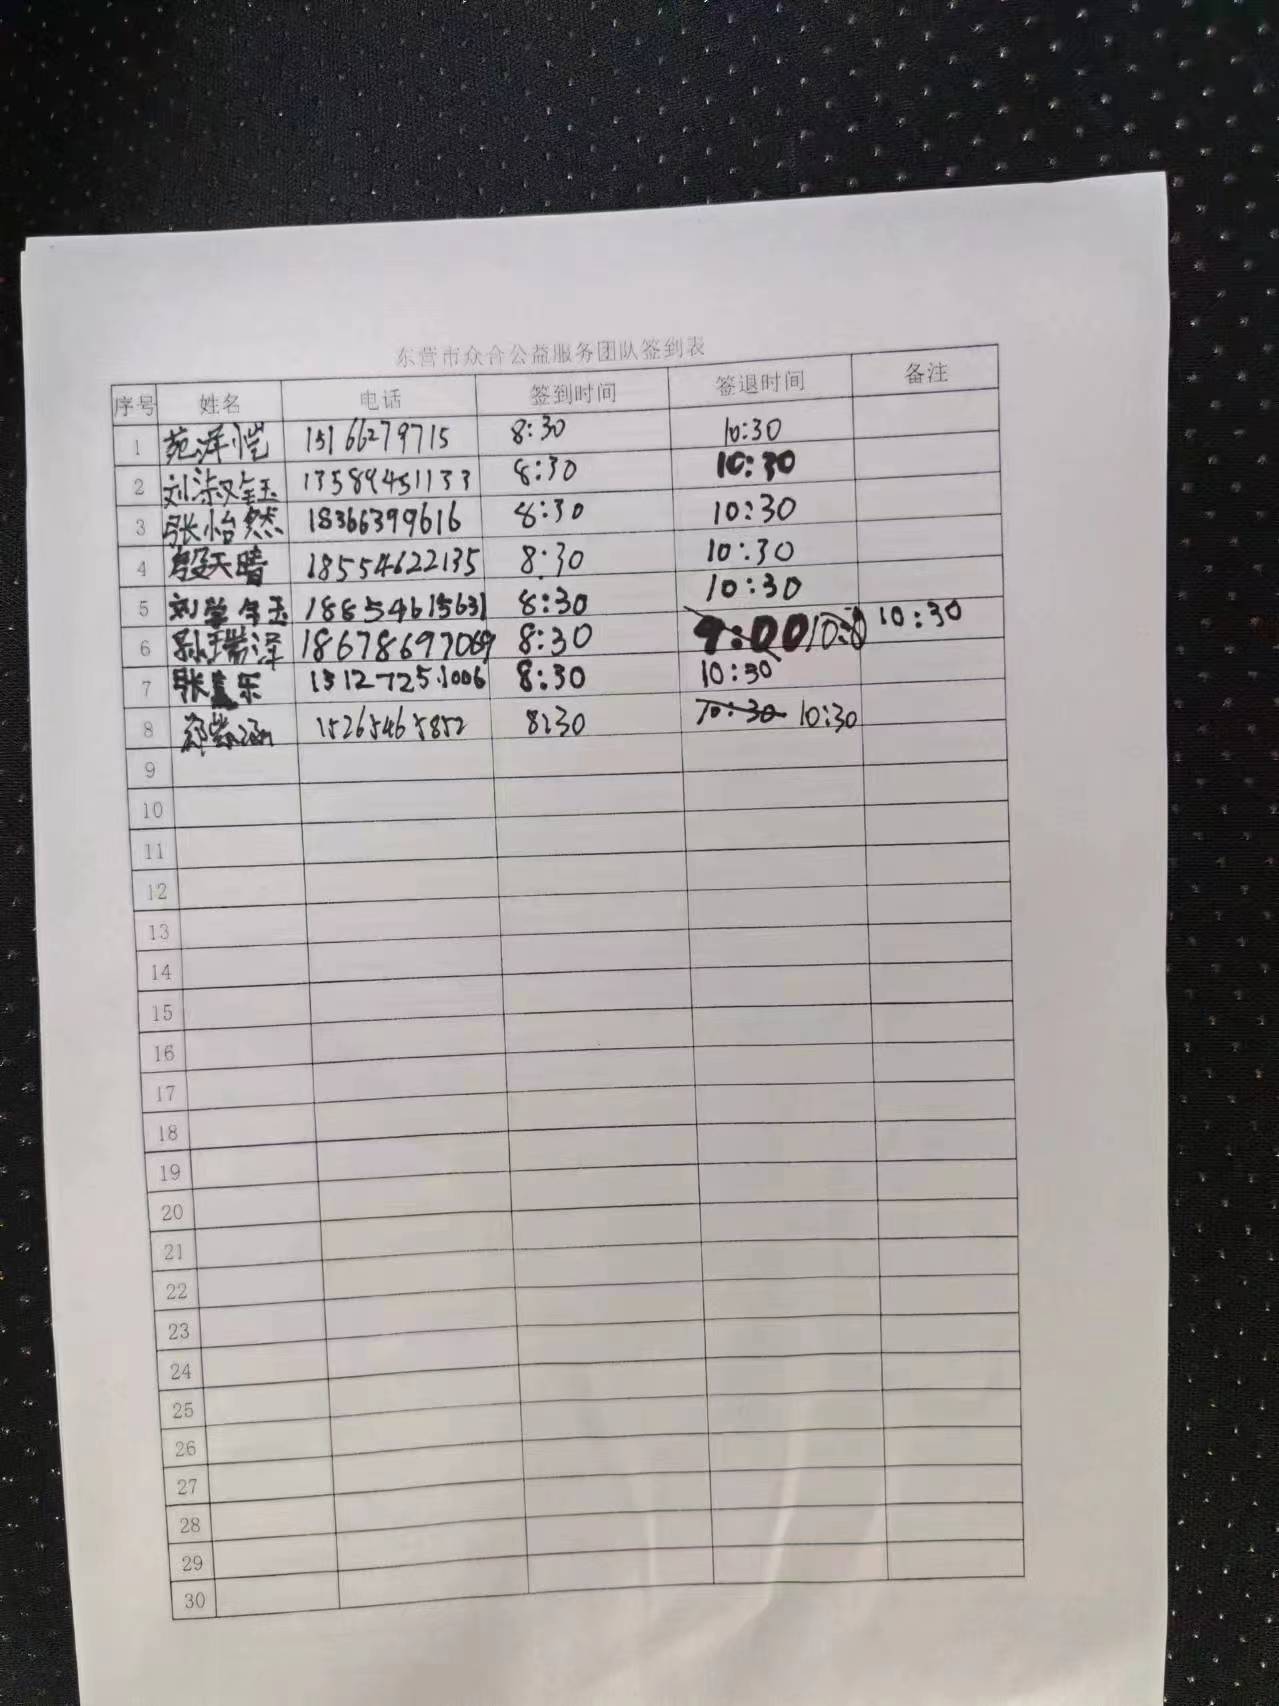 东营市众合公益服务团队签到表
序号 姓名 电话 签到时间 签退时间 备注
1 苑泽恺 15166279715 8:30 10:30
2 刘淑钰 13589451133 8:30 10:30
3 张怡然 18366399616 8:30 10:30
4 殷天晴 18554622135 8:30 10:30
5 刘 18854615631 8:30 10:30
6 孙瑞泽 18678697069 8:30 9:00 10:30
7 张 乐 15127251006 8:30 10:30
8 郑紫涵 15265465852 8:30 10:30 10:30
9
10
11
12
13
14
15
16
17
18
19
20
21
22
23
24
25
26
27
28
29
30